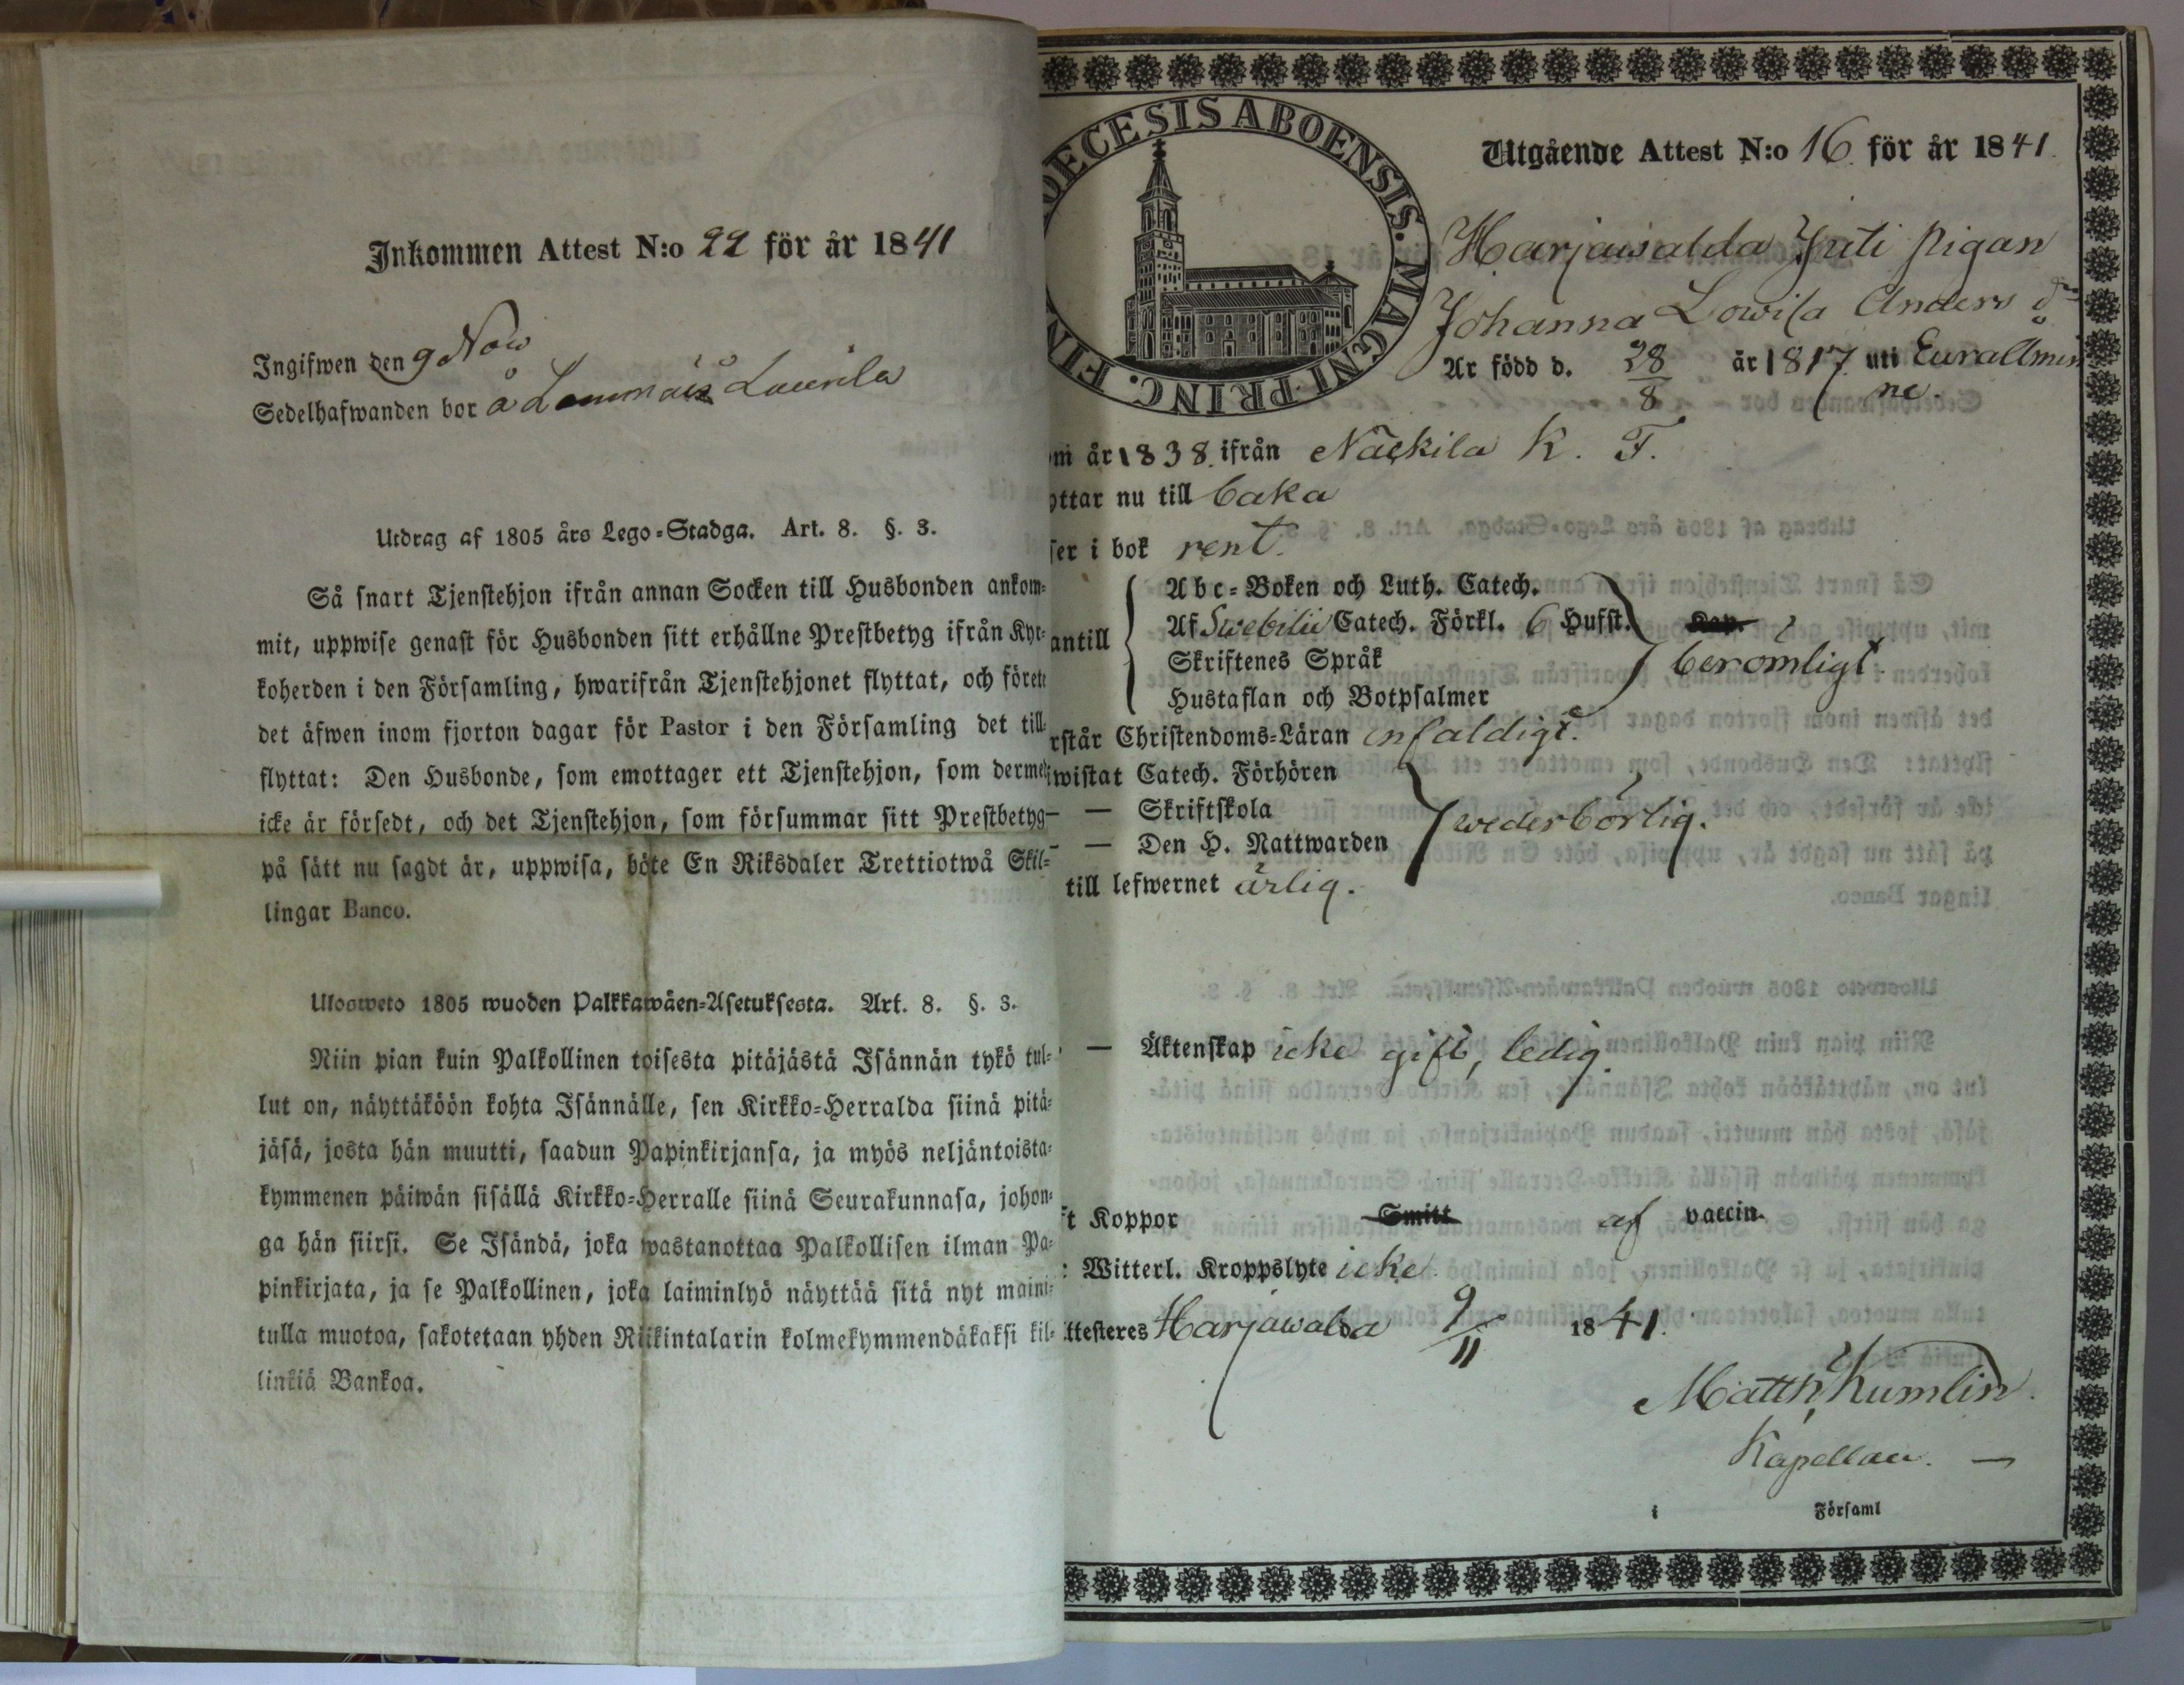 Inkommen Attest N:o 22 för år 1841
Ingifwen den 9 Nov
Sedelhafwanden bor å Lammais Laurila
Utdrag af 1805 års Lego-Stadga. Art. 8. §. 3.
Så snart Tjenstehjon ifrån annan Socken till Husbonden ankom-
mit, uppwise genast för Husbonden sitt erhållne Prestbetyg ifrån Kyr-
koherden i den Församling, hwarifrån Tjenstehjonet flyttat, och förete
det äfwen inom fjorton dagar för Pastor i den Församling det till-
flyttat: Den Husbonde, som emottager ett Tjenstehjon, som dermed
icke är försedt, och det Tjenstehjon, som försummar sitt Prestbetyg
på sätt nu sagdt är, uppwisa, böte En Riksdaler Trettiotwå Skil-
lingar Banco.
Ulosweto 1805 wuoden Palkkawäen-Asetuksesta. Art. 8. §. 3.
Niin pian kuin Palkollinen toisesta pitäjästä Isännän tykö tul-
lut on, näyttäköön kohta Isännälle, sen Kirkko-Herralda siinä pitä-
jäsä, josta hän muutti, saadun Papinkirjansa, ja myös neljäntoista-
kymmenen päiwän sisällä Kirkko-Herralle siinä Seurakunnasa, johon-
ga hän siirsi. Se Isändä, joka wastanottaa Palkollisen ilman Pa-
pinkirjata, ja se Palkollinen, joka laiminlyö näyttää sitä nyt maini-
tulla muotoa, sakotetaan yhden Riikintalarin kolmekymmendäkaksi kil-
linkiä Bankoa.
OECESIS ABOENSIS. MAGNI PRINC. FIN
Utgående Attest N:o 16 för år 1841.
Harjawalda Juti pigan
Johanna Lowisa Anders dr
Är född d. 28/8 år 1817 uti Eura Åmin
ne.
om år 1838. ifrån Nackila K. F.
yttar nu till baka
ser i bok rent.
Abc-Boken och Luth. Catech.
antill Af Swebilii Catech. Förkl. 6 Hufst. Kap.
Skriftenes Språk berömligt
Hustaflan och Botpsalmer
rstår Christendoms-Läran enfaldigt.
iwistat Catech. Förhören
— — Skriftskola wederbörlig.
— — Den H. Nattwarden
till lefwernet ärlig.
— Äktenskap icke gift, ledig.
ft Koppor Smitt af vaccin.
: Witterl. Kroppslyte icke
ttesteres Harjawalda 9/11 1841.
Matth. Kumlin.
Kapellan. —
i Församl